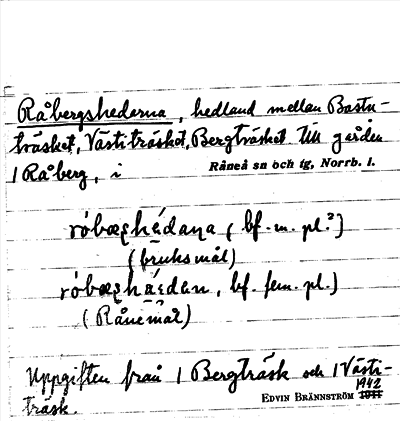 Råbergshederna, hedland mellan Bastu-
träsket, Västiträsket, Bergträsket till gården
1 Råberg, i
Råneå sn och tg, Norrb. l.
róbæʀhédana (bf. m. pl.?)
(bruksmål)
bf. fem. pl.)
(Rånemål)
Uppgiften från 1 Bergträsk och 1 Västi-
träsk.
1942
EDVIN BRÄNNSTRÖM 1941